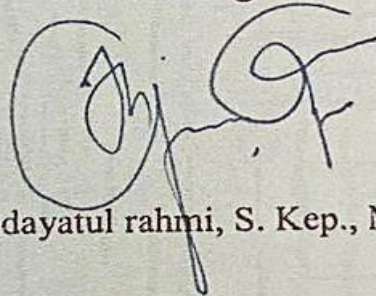 dayatul rahmi, S. Kep.,